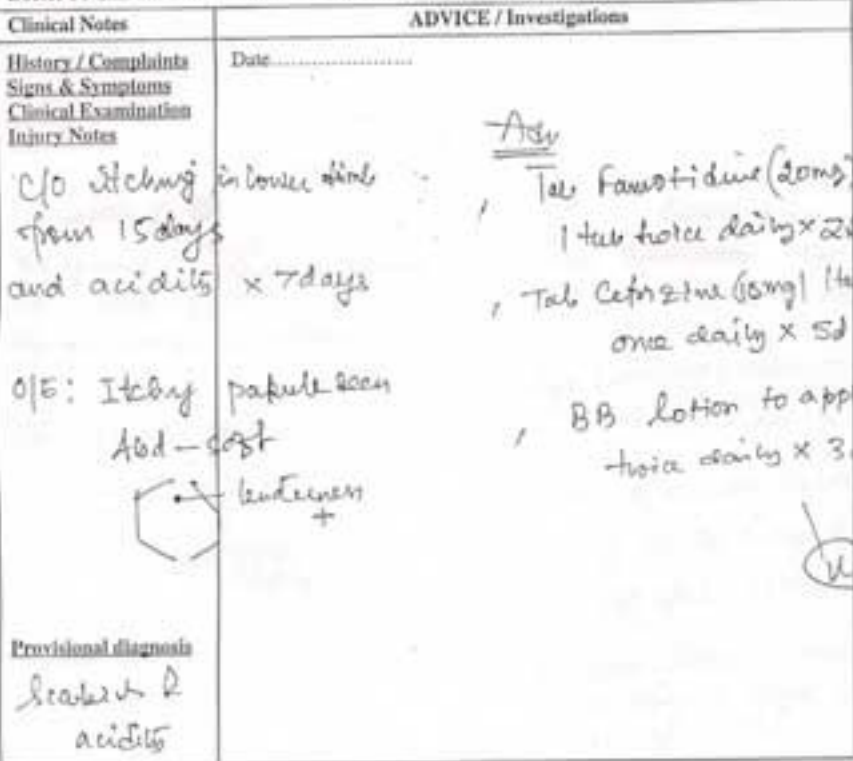 Clinical Notes
ADVICE / Investigations
History / Complaints
Signs & Symptoms
Clinical Examination
Injury Notes
Date
C/O Itching in lower limb
from 15 days
and acidity x 7 days
O/E: Itchy papule seen
Abd - soft
tenderness
+
Provisional diagnosis
Scabies &
acidity
Adv
Tab Famotidine (20mg)
1 tab twice daily x 2
Tab Cetirizine (10mg) 1 ta
once daily x 5d
BB lotion to app
twice daily x 3